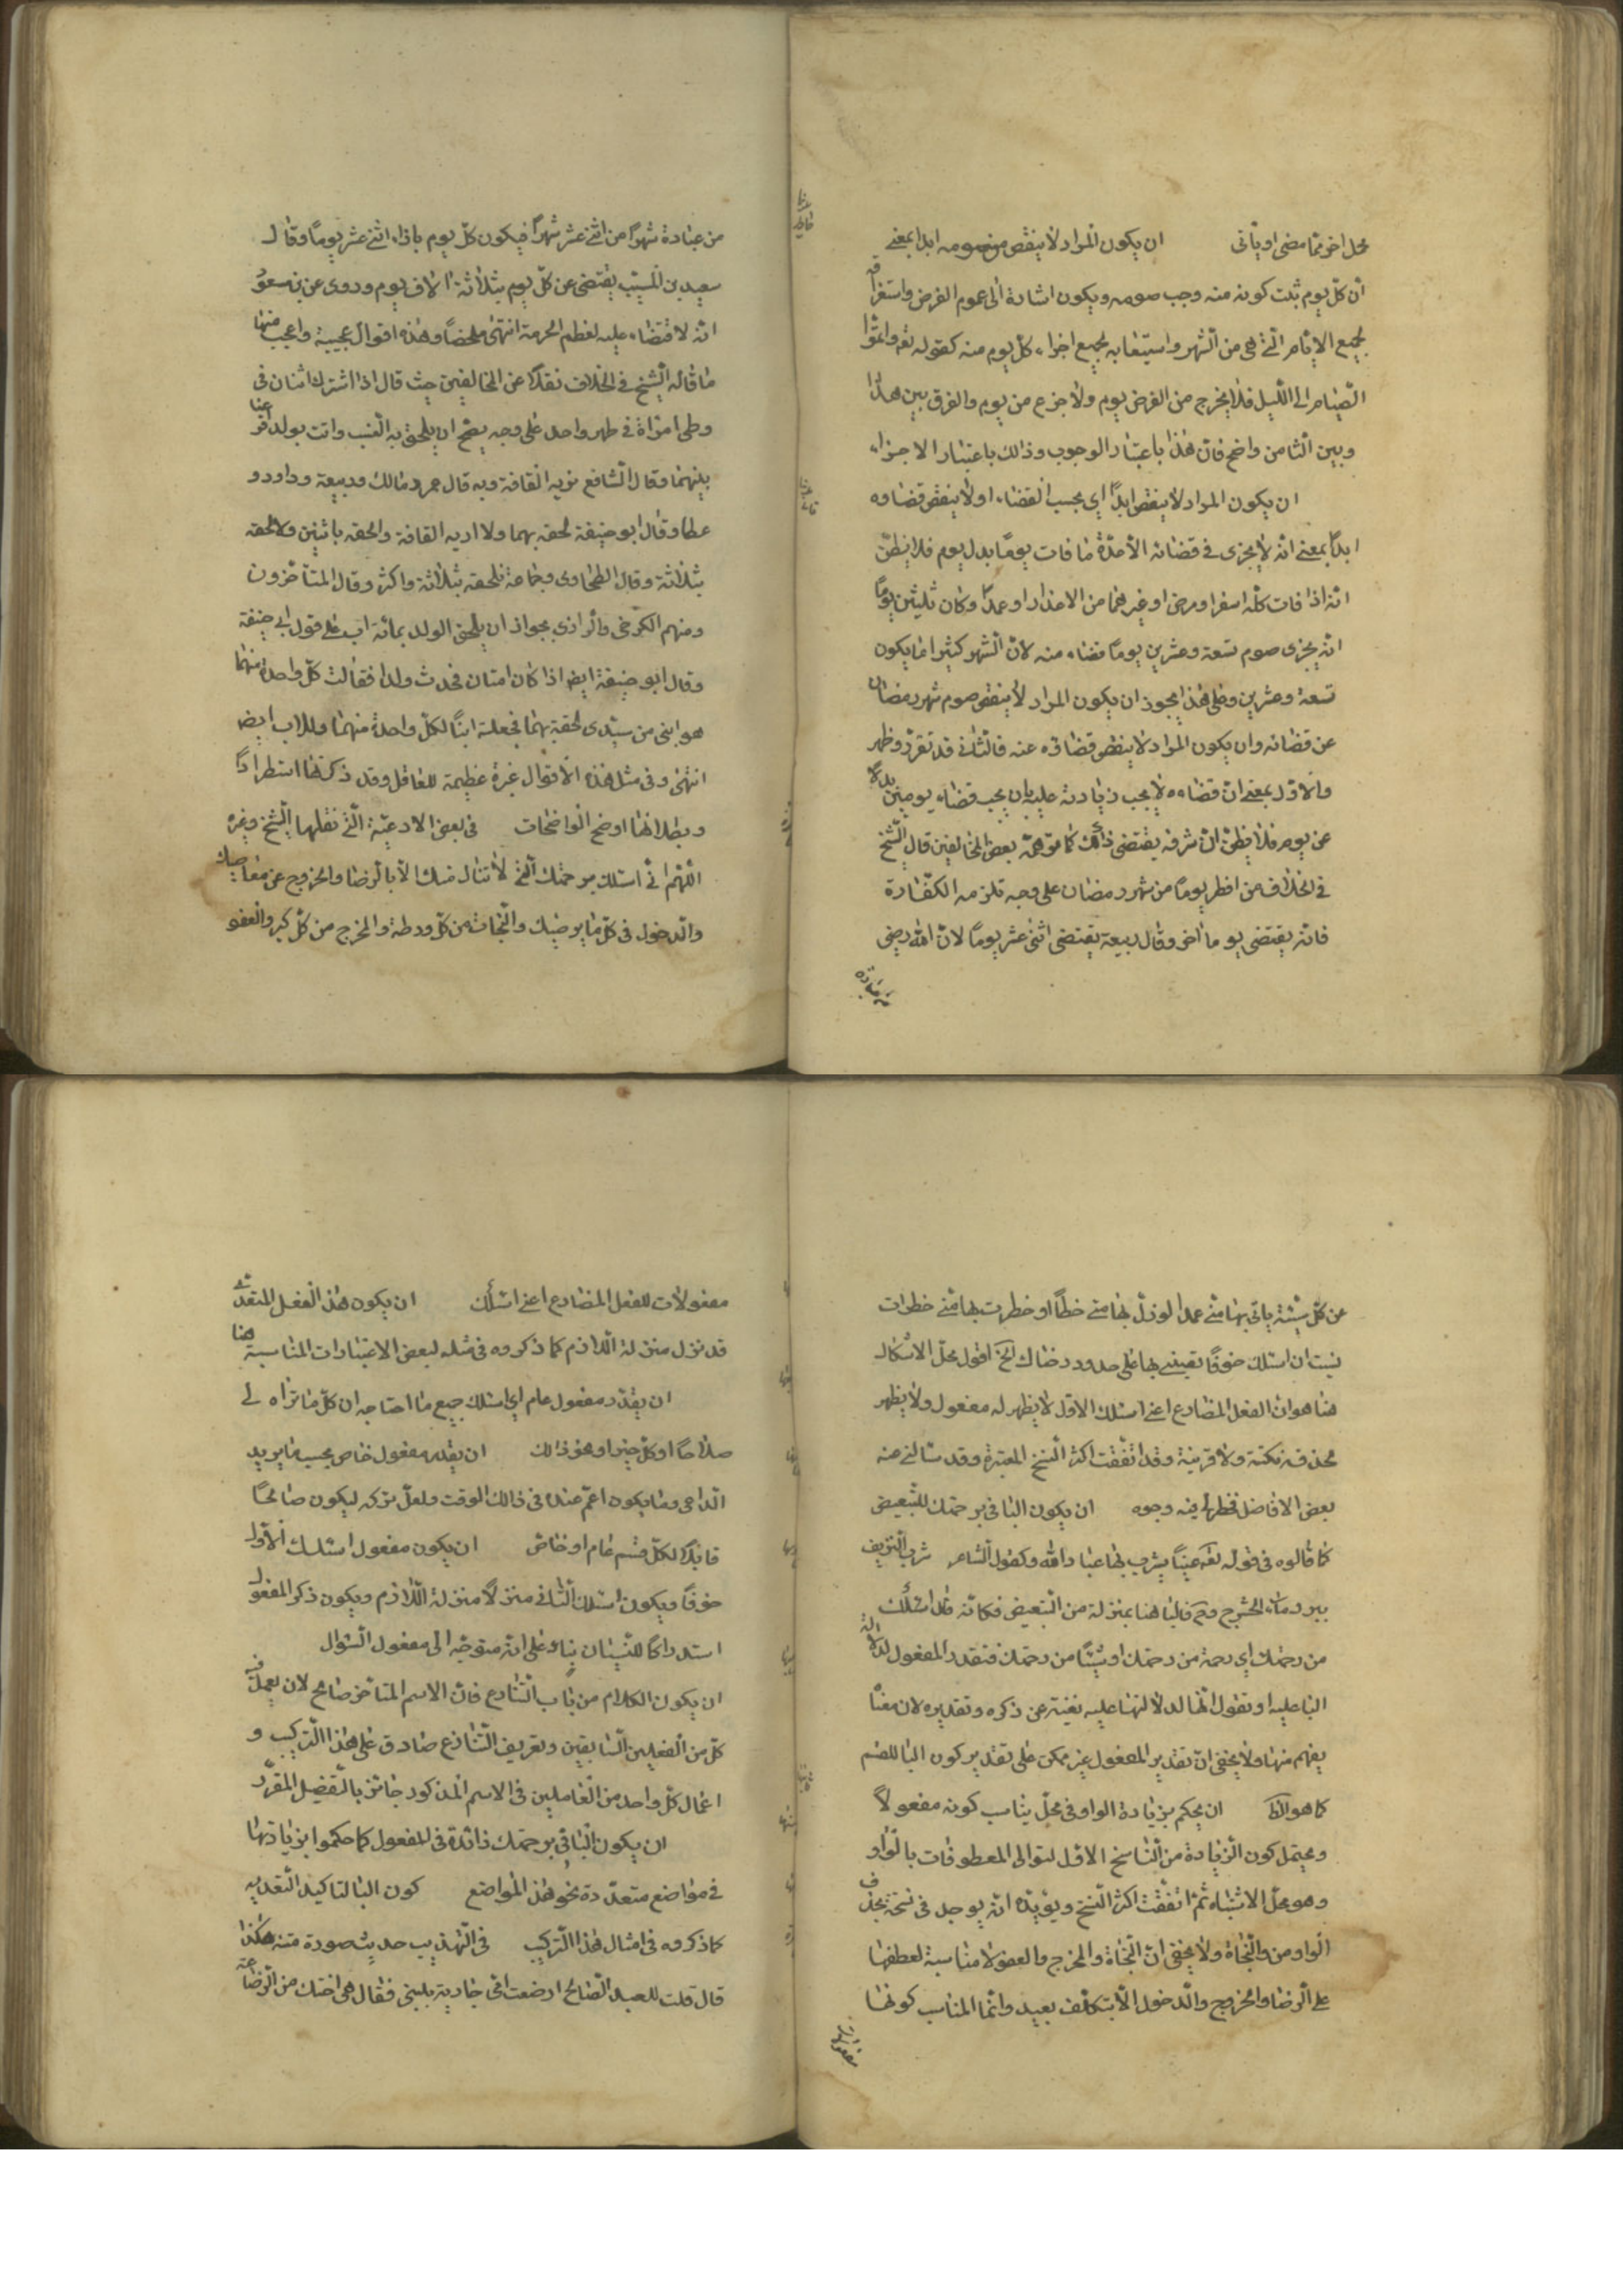 محل اخر ممّا مضى او يأتى ان يكون المراد لا ينقص صومه ابدا بمعنى
ان كلّ يوم ثبت كونه منه وجب صومه ويكون اشارة الى عموم الفرض واستغراقه
لجميع الايّام الّتى هى من الشهر واستيعابه لجميع اجزاء كلّ يوم منه كقوله تعه واتمّوا
الصّيام الى اللّيل فلا يخرج من الفرض يوم ولا جزء من يوم والفرق بين هذا
وبين الثامن واضح فانّ هذا باعتبار الوجوب وذلك باعتبار الاجزاء
ان يكون المراد لا ينقص ابدًا اى بحسب القضاء او لا ينقص قضاوه
ابدًا بمعنى انّه لا يجزى فى قضائه الّا عدّة ما فات يومًا بدل يوم فلا يظنّ
انّه اذا فات كلّه لسفر او مرض او غيرهما من الاعذار او عمدًا وكان ثلثين يومًا
انّه يجزى صوم تسعة وعشرين يومًا قضاء منه لانّ الشهر كثيرا ما يكون
تسعة وعشرين وعلى هذا يجوز ان يكون المراد لا ينقص صوم شهر رمضان
عن قضائه وان يكون المراد لا ينقص قضاؤه عنه فالثانى قد تقرّر وظهر
والاوّل بمعنى انّ قضاءه لا يجب زيادته عليه بان يجب قضاء يومين بدلا
عن يوم فلا يظنّ انّ شرفه يقتضى ذلك كما توهمّه بعض المخالفين قال الشّيخ
فى الخلاف من افطر يومًا من شهر رمضان على وجه تلزمه الكفّارة
فانّه يقتضى يوما اخر وقال ربيعة يقتضى اثنى عشر يومًا لانّ الله رضى
من عبادة
من عبادة شهرًا من اثنى عشر شهرًا فيكون كلّ يوم بازاء اثنى عشر يومًا وقال
سعيد بن المسيّب يقتضى عن كلّ يوم بثلاثة الاف يوم وروى عن بن مسعود
انّه لا قضاء عليه لعظم الحرمة انتهى ملخصًا وهذه اقوال عجيبة واعجب منها
ما قاله الشيخ فى الخلاف نقلا عن المخالفين حيث قال اذا اشترك اثنان فى
وطى امراة فى طهر واحد على وجه يصّح ان يلحق به النسب واتت بولد اقرعنا
بينهما وقال الشافع نريه القافة وبه قال عمر ومالك وربيعة وداود و
عطا وقال ابو حنيفة لحقه بهما ولا اريه القافة والحقه باثنين ولا الحقه
بثلاثة وقال الطحاوى وجماعة نلحقه بثلاثة واكثر وقال المتاخرون
ومنهم الكرخى والرازى بجواز ان يلحق الولد بمائة اب على قول ابى حنيفة
وقال ابو حنيفة ايضا اذا كان امتان فحدث ولد فقالت كلّ واحدة منهما
هو ابنى من سيّدى لحقه بهما فجعله ابنًا لكلّ واحدة منهما وللاب ايضا
انتهى وفى مثل هذه الاقوال عبرة عظيمة للعاقل وقد ذكرتها استطرادًا
وبطلانها اوضح الواضحات فى بعض الادعيّة الّتى نقلها الشيخ وغيره
اللّهم انّى اسئلك برحمتك الّتى لا تنال منك الّا بالرضا والخروج عن معاصيك
والدخول فى كلّ ما يرضيك والنجاة من كلّ ورطة والمخرج من كلّ كبر والعفو
عن كلّ سيّئة ياتى بها منّى عمدا او زلّ بها منّى خطأ او خطرت بها منّى خطرات
نسيت ان اسئلك خوفًا تعيننى به على حدود رضاك الخ اقول محلّ الاشكال
هنا هو انّ الفعل المضارع اعنى اسئلك الاوّل لا يظهر له مفعول ولا يظهر
لحذفه نكتة ولا قرينة وقد اتّفقت اكثر النسخ المعتبرة وقد سألنى عنه
بعض الافاضل فخطر لى فيه وجوه ان يكون البا فى برحمتك للتّبعيض
كما قالوه فى قوله تعه عينًا يشرب بها عباد الله وكقول الشاعر شرب النزيف
ببرد ماء الحشرج وح فالبا هنا بمنزلة من التبعيض فكانّه قال اسئلك
من رحمتك اى رحمة من رحمتك او شيئًا من رحمتك فتقدر المفعول لدلالة
البا عليه او تقول انّها لدلالتها عليه تغنيه عن ذكره وتقديره لان معناه
يفهم منها ولا يخفى انّ تقدير المفعول غير ممكن على تقدير كون البا للقسم
كما هو الظ ان يحكم بزيادة الواو فى محلّ يناسب كونه مفعولًا
ويحتمل كون الزيادة من النّاسخ الاوّل لتوالى المعطوفات بالواو
وهو محلّ الاشتباه ثمّ اتفّقت اكثر النسخ ويؤيّده انّه يوجد فى نسخة بحذف
الواو من والنجاة ولا يخفى انّ النجاة والمخرج والعفو لا مناسبة لعطفها
على الرضا والخروج والدخول الّا بتكلّف بعيد وانّما المناسب كونها
مفعولات
مفعولات للفعل المضارع اعنى اسئلك ان يكون هذا الفعل المتعدّى
قد نزل منزلة اللازم كما ذكروه فى مثله لبعض الاعتبارات المناسبة هنا
ان يقدّر مفعول عام اى اسئلك جميع ما احتاجه ان كلّ ما تراه لى
صلاحًا او كلّ خير او نحو ذلك ان يقدر مفعول خاص بحسب ما يريد
الداعى وما يكون اعمّ عنده فى ذلك الوقت ولعلّ تركه ليكون صالحًا
قابلًا لكلّ قسم عام او خاصّ ان يكون مفعول اسئلك الاوّل
خوفًا ويكون اسئلك الثانى منزلًا منزلة اللازم ويكون ذكر المفعول
استدراكًا للنّسيان بناء على انّه متوجّه الى مفعول السّؤال
ان يكون الكلام من باب التنازع فانّ الاسم المتأخر صالح لان يعمل فيه
كلّ من الفعلين السابقين وتعريف التنازع صادق على هذا التركيب و
اعمال كلّ واحد من العاملين فى الاسم المذكور جائز بالتفصيل المقرّر
ان يكون البا فى برحمتك زائدة فى المفعول كما حكموا بزيادتها
فى مواضع متعدّدة نحو هذه المواضع كون البا لتاكيد التعديه
كما ذكروه فى امثال هذا التركيب فى التهذيب حديث صورة متنه هكذا
قال قلت للعبد الصّالح ارضعت امّى جارية بلبنى فقال هى اختك من الرضاعة